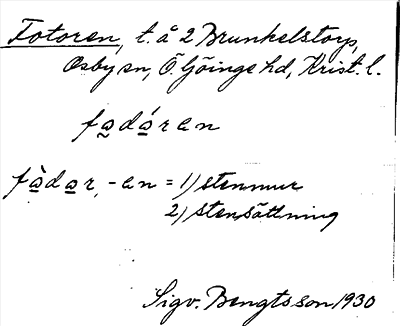 Fotoren, t. å 2 Brunkelstorp,
Osby sn, Ö. Göinge hd, Krist. l.
fa̰dáran
fàdar, -an = 1) stenmur
2) stensättning
Sigv. Bengtsson 1930